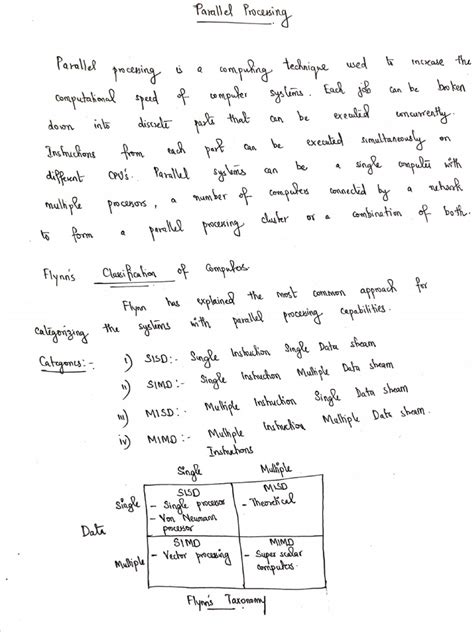 Parallel Processing
Parallel processing is a computing technique used to increase the
computational speed of computer systems. Each job can be broken
down into discrete parts that can be executed concurrently.
Instructions from each part can be executed simultaneously on
different CPU's. Parallel systems can be a single computer with
multiple processors, a number of computers connected by a network
to form a parallel processing cluster or a combination of both.
Flynn's Classification of Computers
Flynn has explained the most common approach for
categorizing the systems with parallel processing capabilities.
Categories:- i) SISD:- Single Instruction Single Data stream
ii) SIMD:- Single Instruction Multiple Data stream
iii) MISD:- Multiple Instruction Single Data stream
iv) MIMD:- Multiple Instruction Multiple Data stream.
Instructions
Single Multiple
SISD MISD
Single - Single processor - Theoretical
- Von Neumann
processor
Data
SIMD MIMD
Multiple - Vector processing - Super scalar
computers.
Flynn's Taxonomy